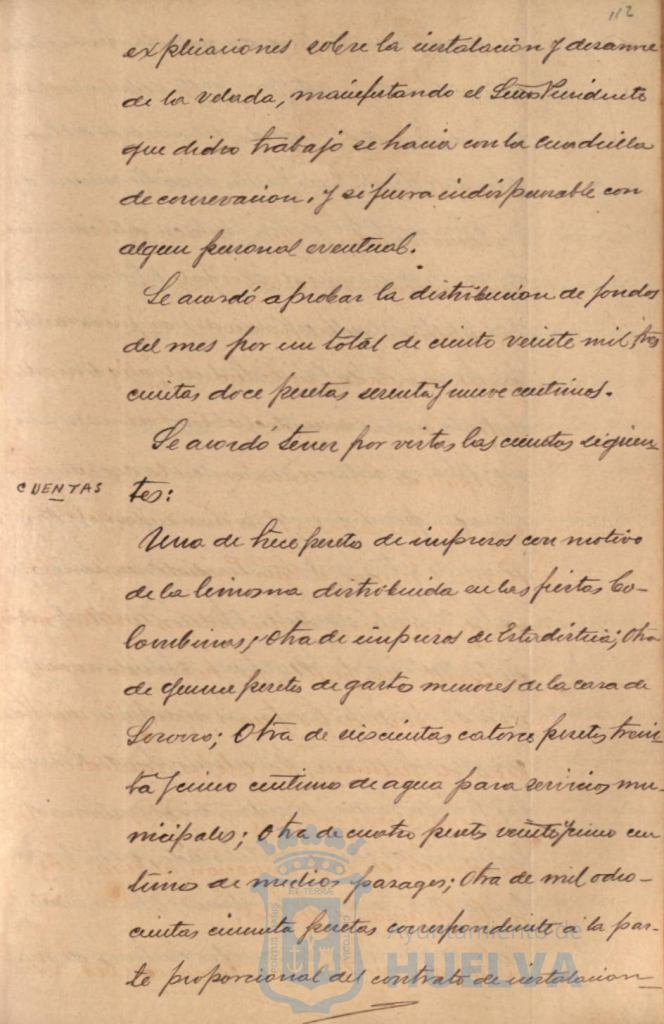 112
explicaciones sobre la instalación y desarme
de la velada, manifestando el Señor Presidente
que dicho trabajo se hacia con la cuadrilla
de conservacion, y si fuera indispensable con
algun personal eventual.
Se acordó aprobar la distribucion de fondos
del mes por un total de ciento veinte mil, tres
cientas doce pesetas setenta y nueve centimos.
Se acordó tener por vistas las cuentas siguien-
CUENTAS
tes:
Una de trece pesetas de impresos con motivo
de la limosna distribuida en las fiestas Co-
lombinas; otra de impresos de Estadística; Otra
de quince pesetas de gastos menores de la casa de
Socorro; Otra de seiscientas catorce pesetas trein-
ta y cinco centimos de agua para servicios mu-
nicipales; Otra de cuatro pesetas veinticinco cen
timos de medios pasages; Otra de mil ocho-
cientas cincuenta pesetas correspondiente a la par-
te proporcional del contrato de instalacion
Ayuntamiento de
HUELVA